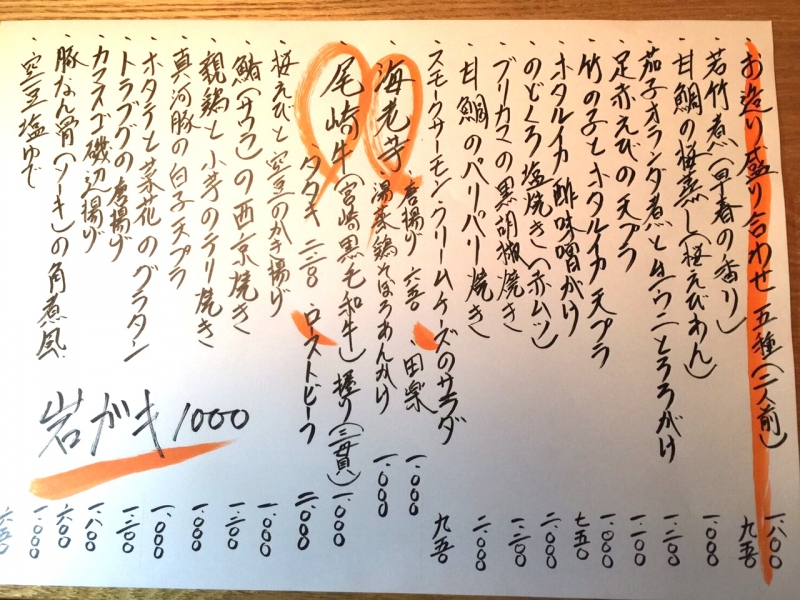 ・お造り盛り合わせ 五種(二人前) 一.八〇〇
・若竹煮(早春の香り) 九五〇
・甘鯛の桜蒸し(桜えびあん) 一.〇〇〇
・茄子オランダ煮と生ウニとろろがけ 一.二〇〇
・足赤えびの天プラ 一.二〇〇
・竹の子とホタルイカ天プラ 一.〇〇〇
・ホタルイカ酢味噌がけ 七五〇
・のどくろ塩焼き(赤ムツ) 二.〇〇〇
・ブリカマの黒胡椒焼き 一.二〇〇
・甘鯛のパリパリ焼き 二.〇〇〇
・スモークサーモンクリームチーズのサラダ 九五〇
・海老芋 唐揚げ 六五〇 ・田楽 一.〇〇〇
湯葉鶏そぼろあんかけ 一.〇〇〇
・尾崎牛(宮崎黒毛和牛) 握り(二貫) 一.〇〇〇
タタキ ・ローストビーフ 二.〇〇〇
・桜えびと空豆のかき揚げ 一.〇〇〇
・鰆(サワラ)の西京焼き 一.二〇〇
・親鶏と小芋のテリ焼き 一.〇〇〇
・真河豚の白子天プラ 一.〇〇〇
・ホタテと菜花のグラタン 一.二〇〇
・トラフグの唐揚げ 一.八〇〇
・カマスゴ磯辺揚げ 六〇〇
・豚なん骨(ソーキ)の角煮風 一.〇〇〇
・空豆塩ゆで 六五〇
岩ガキ 1000